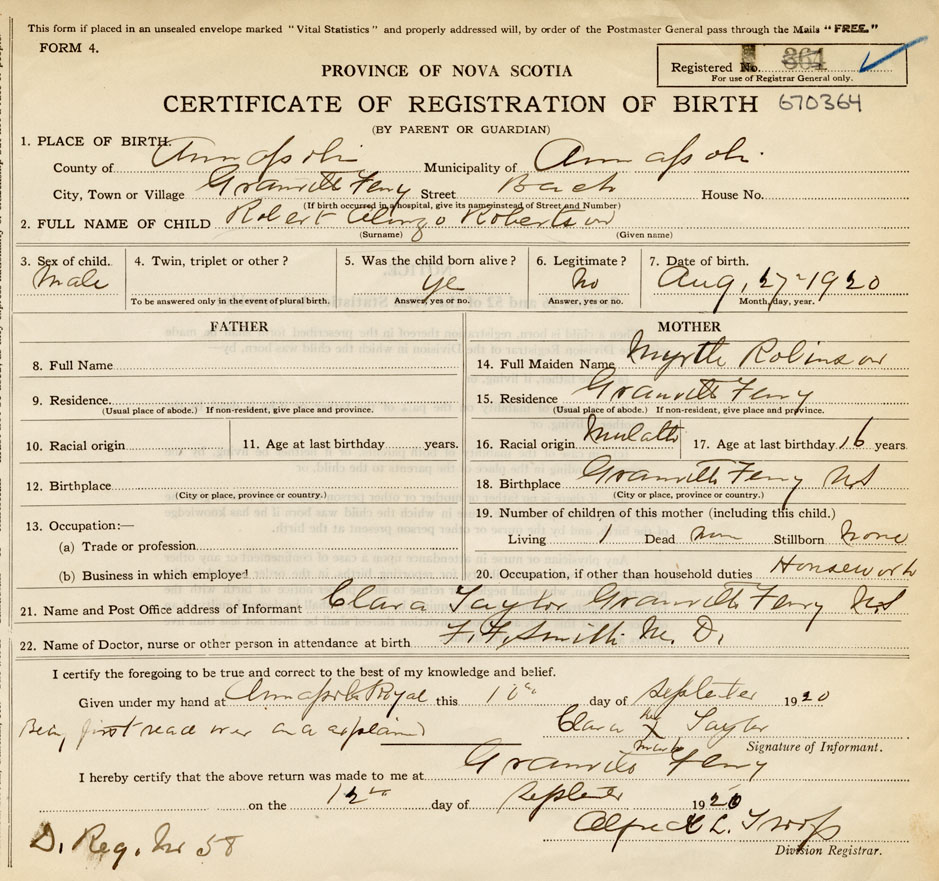 This form if placed in an unsealed envelope marked "Vital Statistics" and properly addressed will, by order of the Postmaster General pass through the Mails "FREE."
FORM 4.
Registered No. 364
For use of Registrar General only.
PROVINCE OF NOVA SCOTIA
CERTIFICATE OF REGISTRATION OF BIRTH 670364
(BY PARENT OR GUARDIAN)
1. PLACE OF BIRTH.
County of Annapolis Municipality of Annapolis
City, Town or Village Granville Ferry Street Back House No.
(If birth occurred in a hospital, give its name instead of Street and Number)
2. FULL NAME OF CHILD Robert Alonzo Robertson
(Surname) (Given name)
3. Sex of child. 4. Twin, triplet or other? 5. Was the child born alive? 6. Legitimate? 7. Date of birth.
Male yes no Aug, 27-1920
To be answered only in the event of plural birth. Answer, yes or no. Answer, yes or no. Month, day, year.
FATHER
8. Full Name
9. Residence.
(Usual place of abode.) If non-resident, give place and province.
10. Racial origin 11. Age at last birthday years.
12. Birthplace
(City or place, province or country.)
13. Occupation:—
(a) Trade or profession
(b) Business in which employed
MOTHER
14. Full Maiden Name Myrtle Robinson
15. Residence Granville Ferry
(Usual place of abode.) If non-resident, give place and province.
16. Racial origin Mulatto 17. Age at last birthday 16 years.
18. Birthplace Granville Ferry NS
(City or place, province or country.)
19. Number of children of this mother (including this child.)
Living 1 Dead none Stillborn None
20. Occupation, if other than household duties Housework
21. Name and Post Office address of Informant Clara Taylor Granville Ferry NS
22. Name of Doctor, nurse or other person in attendance at birth F. F. Smith M. D.
I certify the foregoing to be true and correct to the best of my knowledge and belief.
Given under my hand at Annapolis Royal this 10th day of September 1920
Being first read over and explained Clara her X mark Taylor
Signature of Informant.
I hereby certify that the above return was made to me at Granville Ferry
on the 12th day of September 1920
Alfred L. Troop
Division Registrar.
D. Reg. No 58